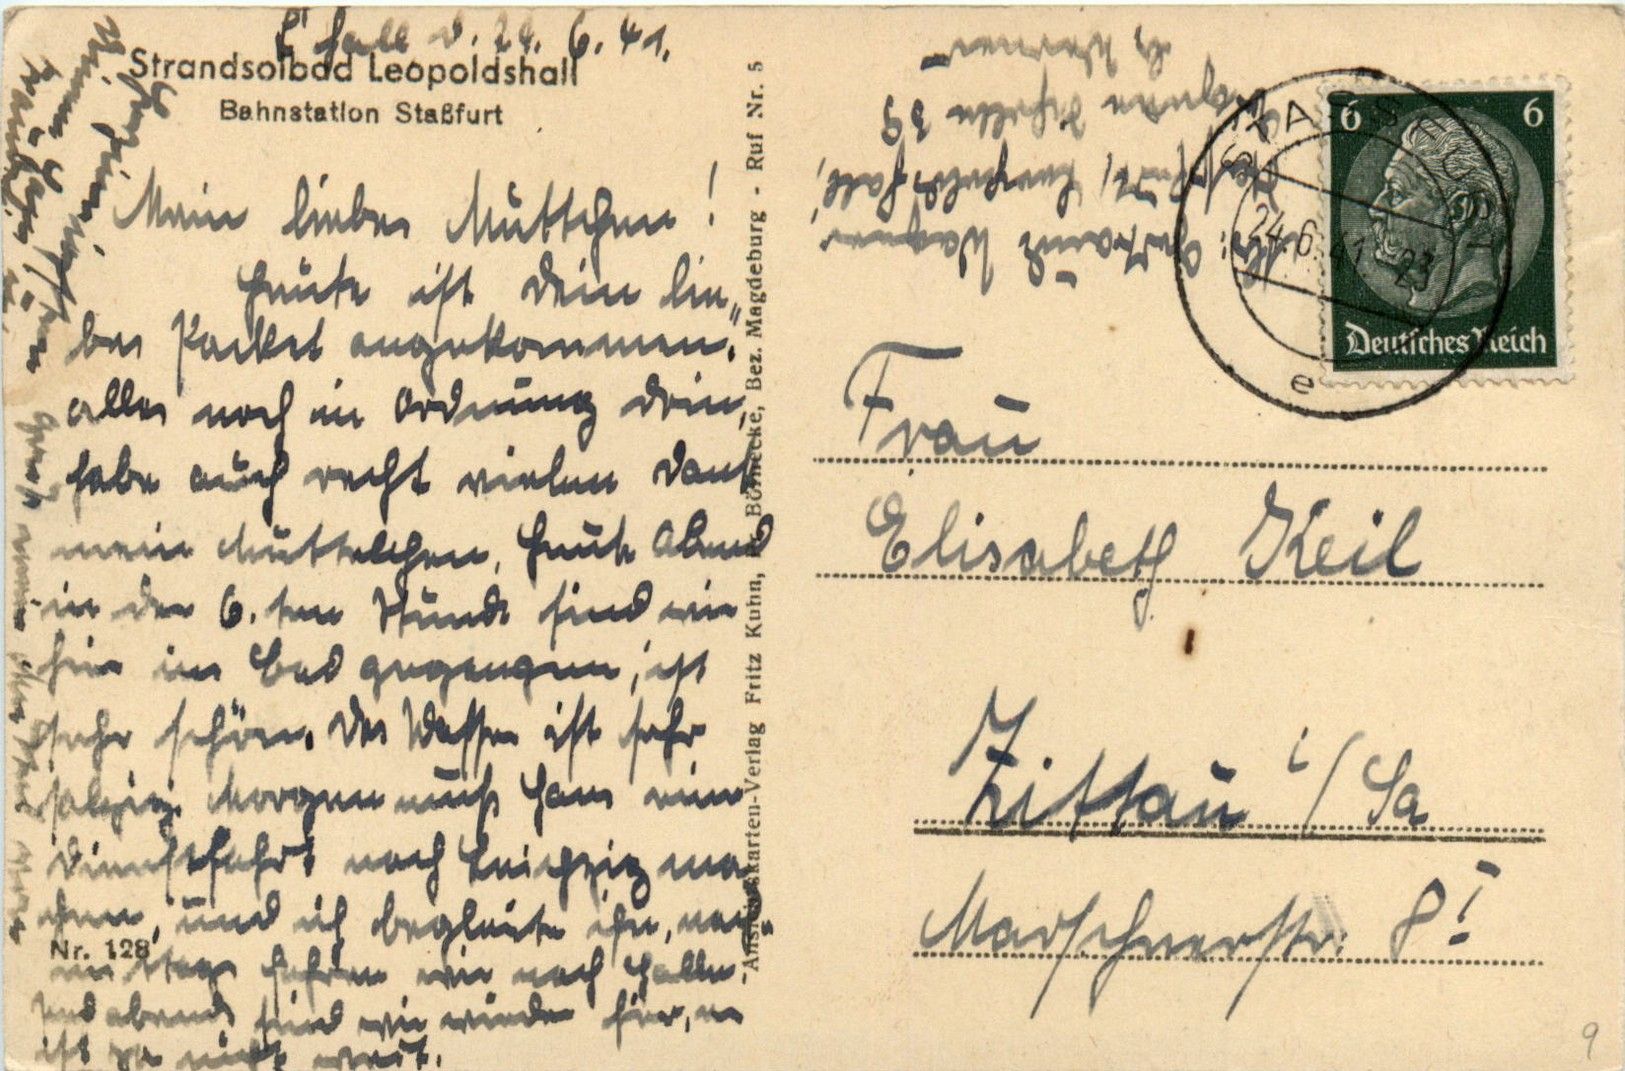 L'hall d. 24. 6. 41.
Strandsolbad Leopoldshall
Bahnstation Staßfurt
Mein liebes Muttchen!
Heute ist Dein lie„
bes Packet angekommen.
alles noch in Ordnung drin,
habe auch recht vielen Dank
mein Muttelchen, heute Abend
in der 6. ten Stunde sind wir
hier im Bad gegangen, ist
sehr schön. Das Wasser ist sehr
salzig. Morgen muß Hans eine
Dienstfahrt nach Leipzig ma„
chen, und ich begleite ihn, nach„
mittags fahren wir nach Halle
und abends sind wir wieder hier, es
ist ja nicht weit.
Nr. 128
Ansichtskarten-Verlag Fritz Kuhn, Fr. Börnecke, Bez. Magdeburg - Ruf Nr. 5
Abs: Gertraud Wagner
Staßfurt, Leopoldshall,
39
b, Werner
STASSFURT
24.6.41 23
e
6 6
Deutsches Reich
Frau
Elisabeth Keil
Zittau i/Sa
Marschnerstr. 8 I
9